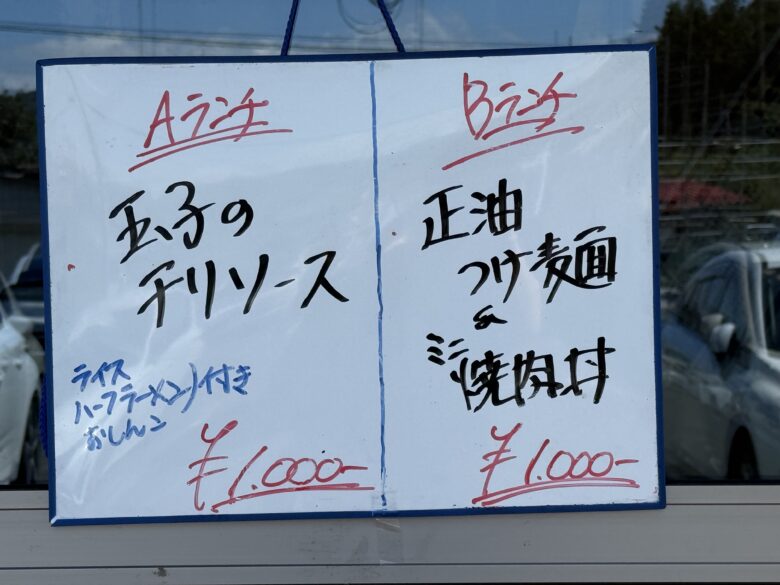 Aランチ
玉子の
チリソース
ライス
ハーフラーメン 付き
おしんこ
¥1.000-
Bランチ
正油
つけ麦面
&
ミニ焼肉丼
¥1.000-